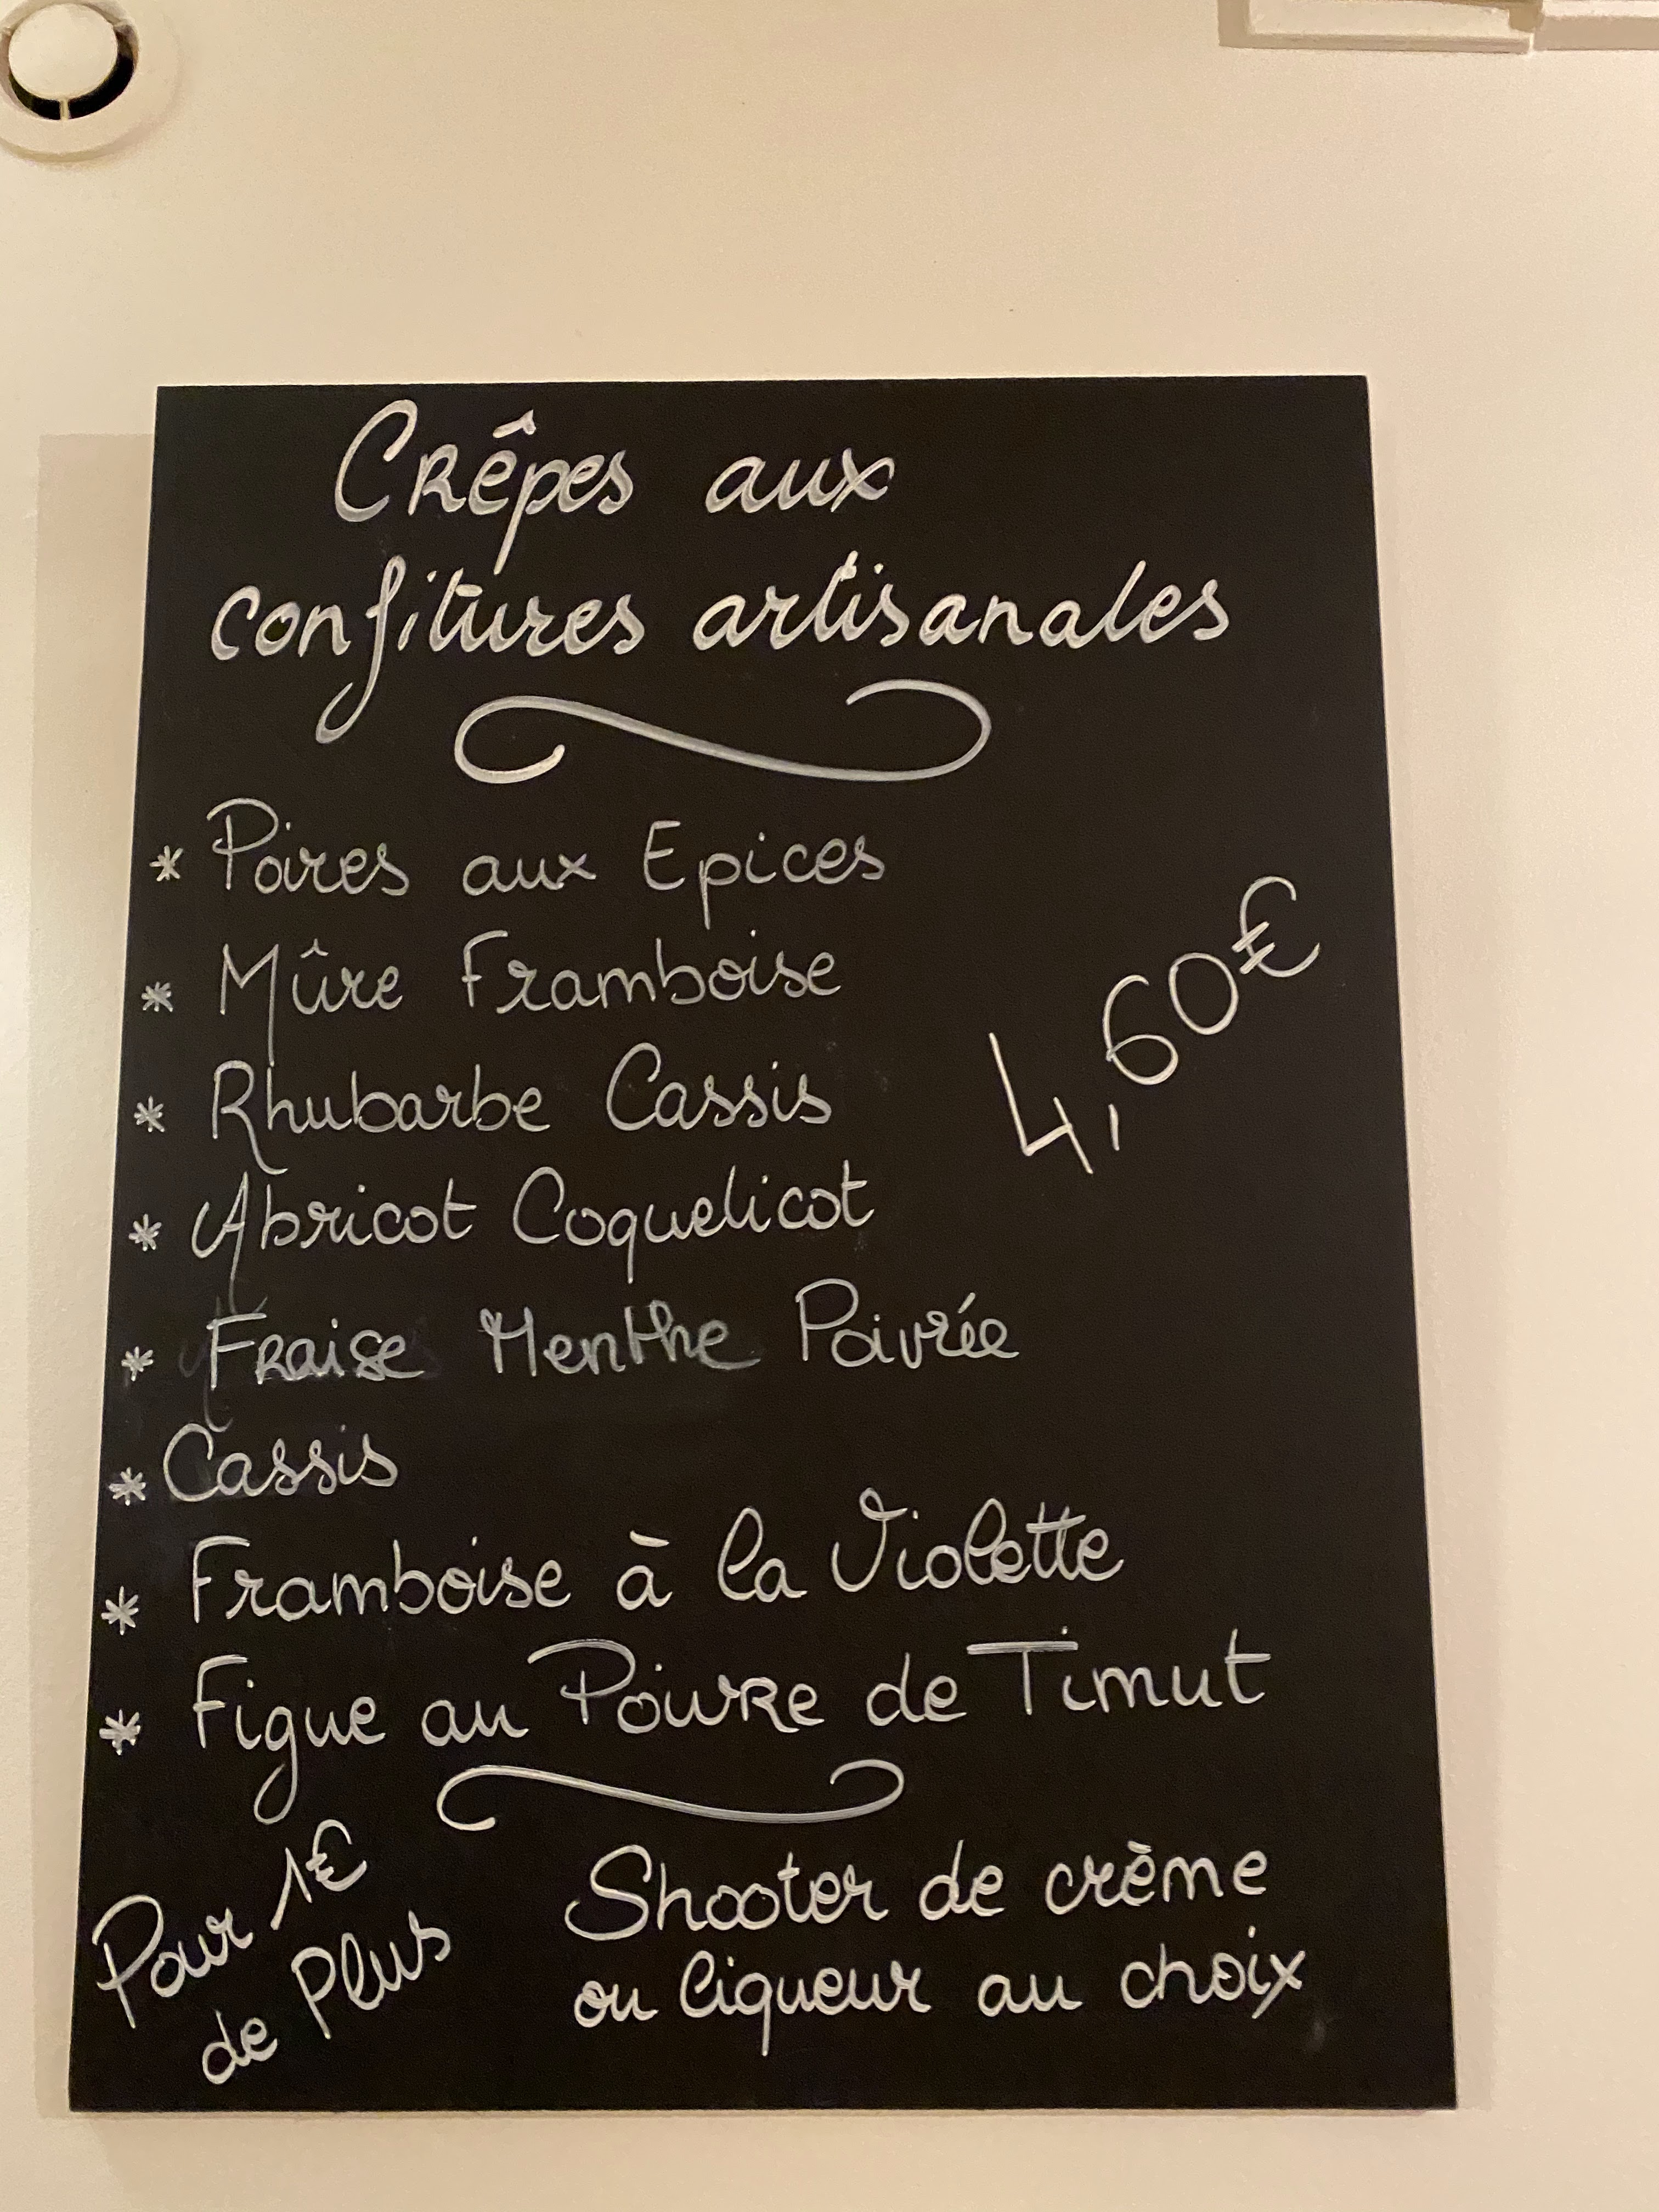 Crêpes aux
confitures artisanales
* Poires aux Epices
* Mûre Framboise
* Rhubarbe Cassis
* Abricot Coquelicot
* Fraise Menthe Poivrée
* Cassis
* Framboise à la Violette
* Figue au Poivre de Timut
4,60€
Pour 1€
de Plus
Shooter de crème
ou liqueur au choix